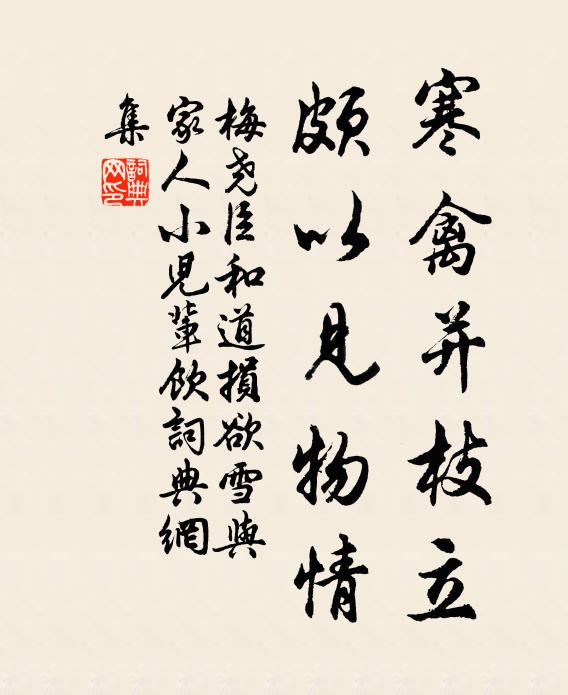 寒禽并枝立
頗以見物情
梅尧臣和道損欲雪與
家人小児輩飲詞典網
集
詞典網印